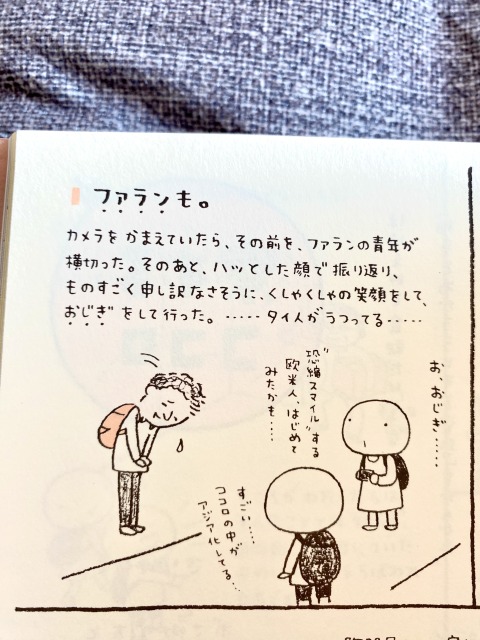 ファランも。
カメラをかまえていたら、その前を、ファランの青年が
横切った。そのあと、ハッとした顔で振り返り、
ものすごく申し訳なさそうに、くしゃくしゃの笑顔をして、
おじぎをして行った。……タイ人がうつってる……
お、おじぎ……
“恐縮スマイル”する
欧米人、はじめて
みたかも……
すごい……
ココロの中が
アジア化してる…